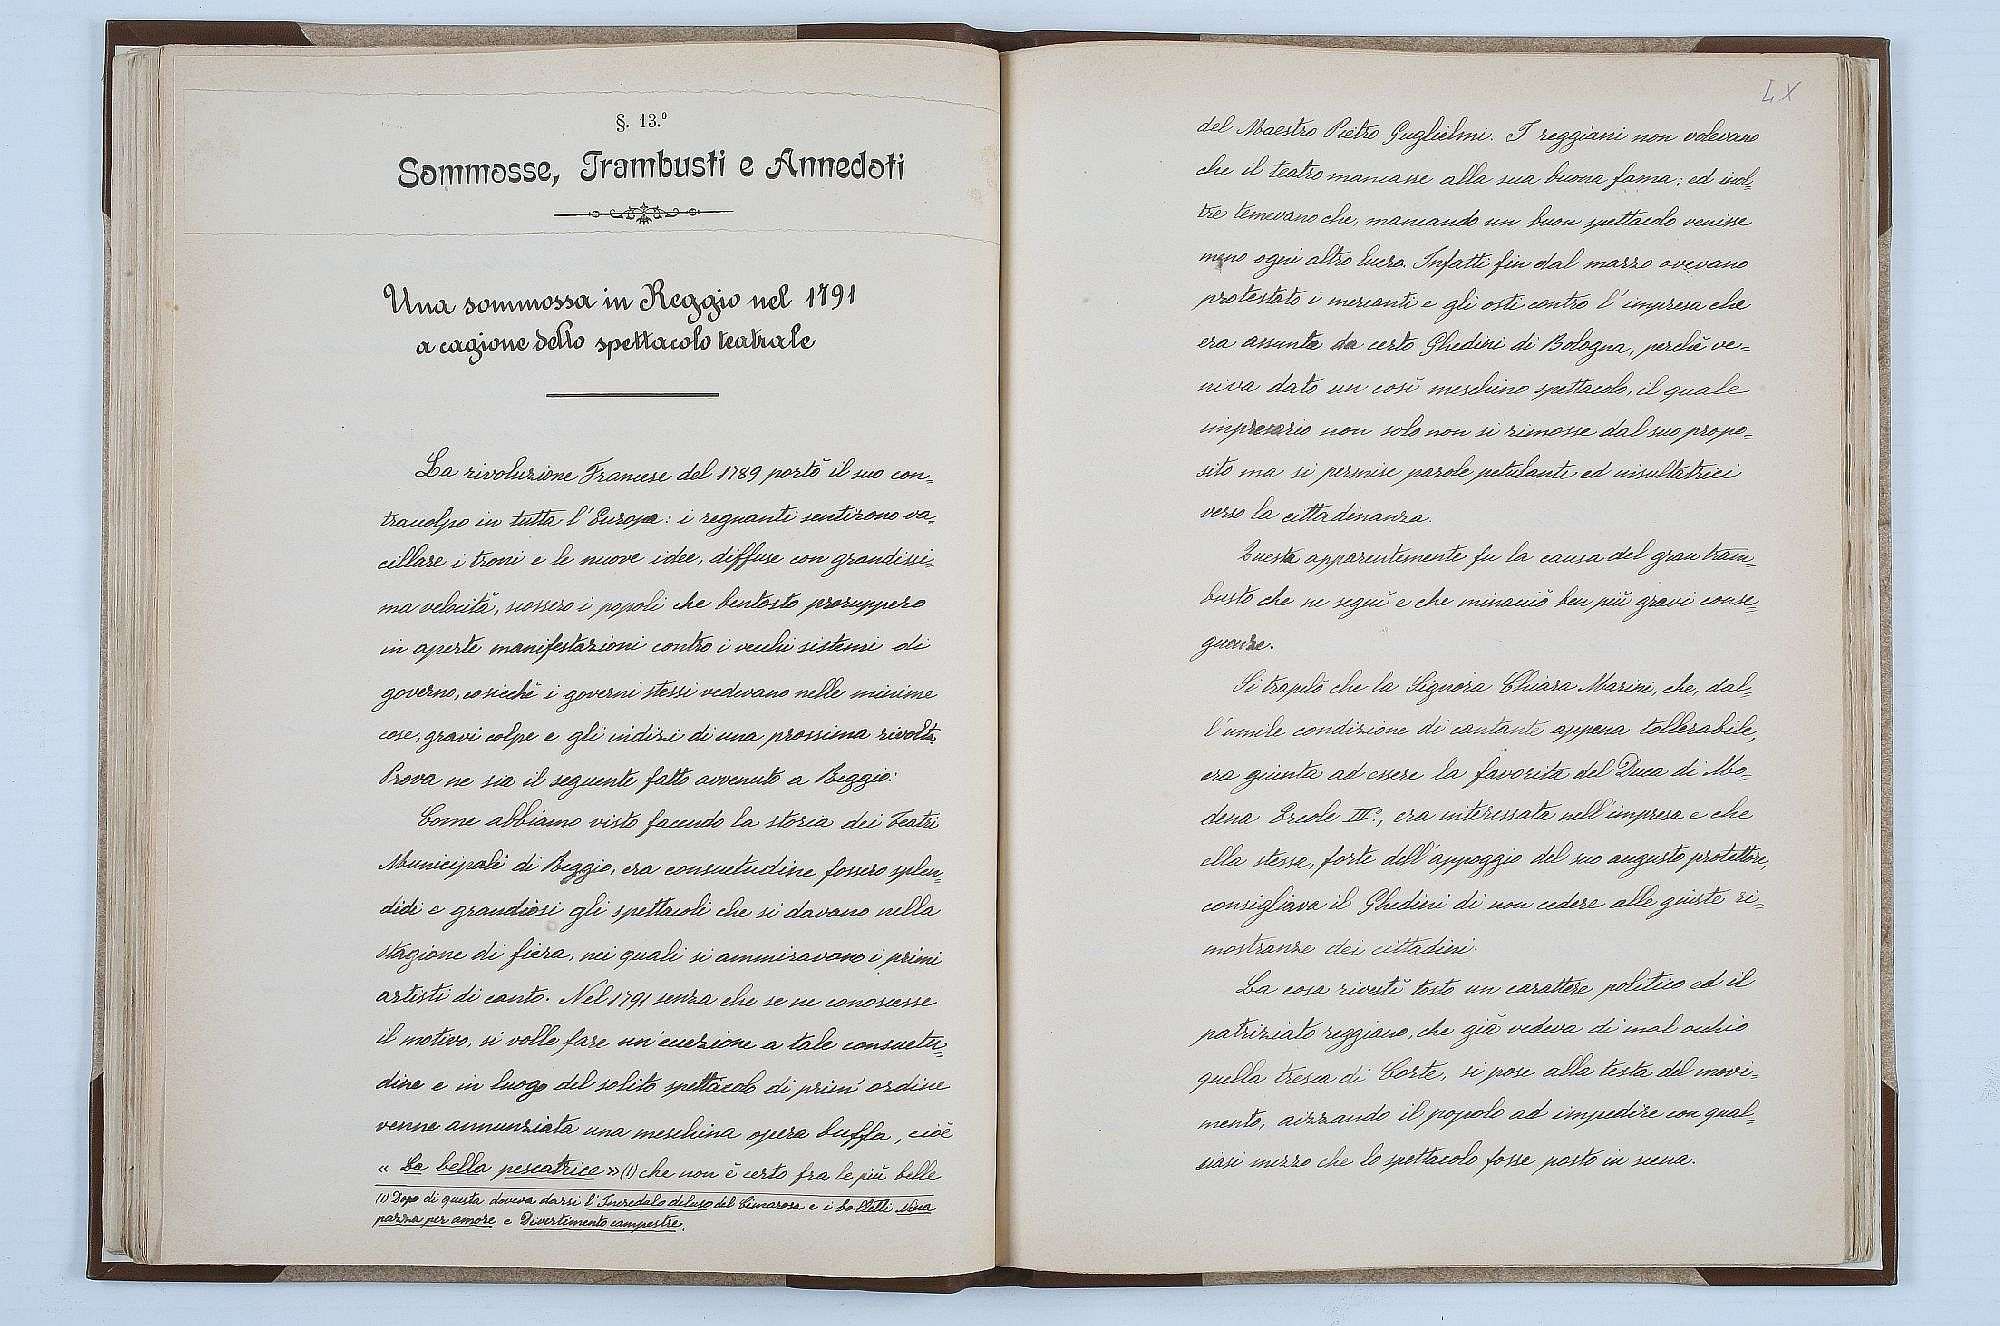 §. 13.º
Sommosse, Trambusti e Annedoti
Una sommossa in Reggio nel 1791
a cagione dello spettacolo teatrale
La rivoluzione Francese del 1789 portò il suo con-
traccolpo in tutta l'Europa: i regnanti sentirono va-
cillare i troni e le nuove idee, diffuse con grandissi-
ma velocità, scossero i popoli che bentosto proruppero
in aperte manifestazioni contro i vecchi sistemi di
governo, cosicchè i governi stessi vedevano nelle minime
cose, gravi colpe e gli indizi di una prossima rivolta.
Prova ne sia il seguente fatto avvenuto a Reggio:
Come abbiamo visto facendo la storia dei Teatri
Municipali di Reggio, era consuetudine fossero splen-
didi e grandiosi gli spettacoli che si davano nella
stagione di fiera, nei quali si ammiravano i primi
artisti di canto. Nel 1791 senza che se ne conoscesse
il motivo, si volle fare un'eccezione a tale consuetu-
dine e in luogo del solito spettacolo di prim'ordine
venne annunziata una meschina opera buffa, cioè
« La bella pescatrice » (1) che non è certo fra le più belle
(1) Dopo di questa doveva darsi l'Incredulo deluso del Cimarosa e i balletti Nina
pazza per amore e Divertimento campestre.
LX
del Maestro Pietro Guglielmi. I reggiani non volevano
che il teatro mancasse alla sua buona fama; ed inol-
tre temevano che, mancando un buon spettacolo venisse
meno ogni altro lucro. Infatti fin dal marzo avevano
protestato i mercanti e gli osti contro l'impresa che
era assunta da certo Ghedini di Bologna, perchè ve-
niva dato un così meschino spettacolo, il quale
impresario non solo non si rimosse dal suo propo-
sito ma si permise parole petulanti ed insultatrici
verso la cittadinanza.
Questa apparentemente fu la causa del gran tram-
busto che ne seguì e che minacciò ben più gravi conse-
guenze.
Si trapelò che la Signora Chiara Marini, che, dal-
l'umile condizione di cantante appena tollerabile,
era giunta ad essere la favorita del Duca di Mo-
dena Ercole III.º, era interessata nell'impresa e che
ella stessa, forte dell'appoggio del suo augusto protettore,
consigliava il Ghedini di non cedere alle giuste ri-
mostranze dei cittadini.
La cosa rivestì tosto un carattere politico ed il
patriziato reggiano, che già vedeva di mal occhio
quella tresca di Corte, si pose alla testa del movi-
mento, aizzando il popolo ad impedire con qual-
siasi mezzo che lo spettacolo fosse posto in scena.